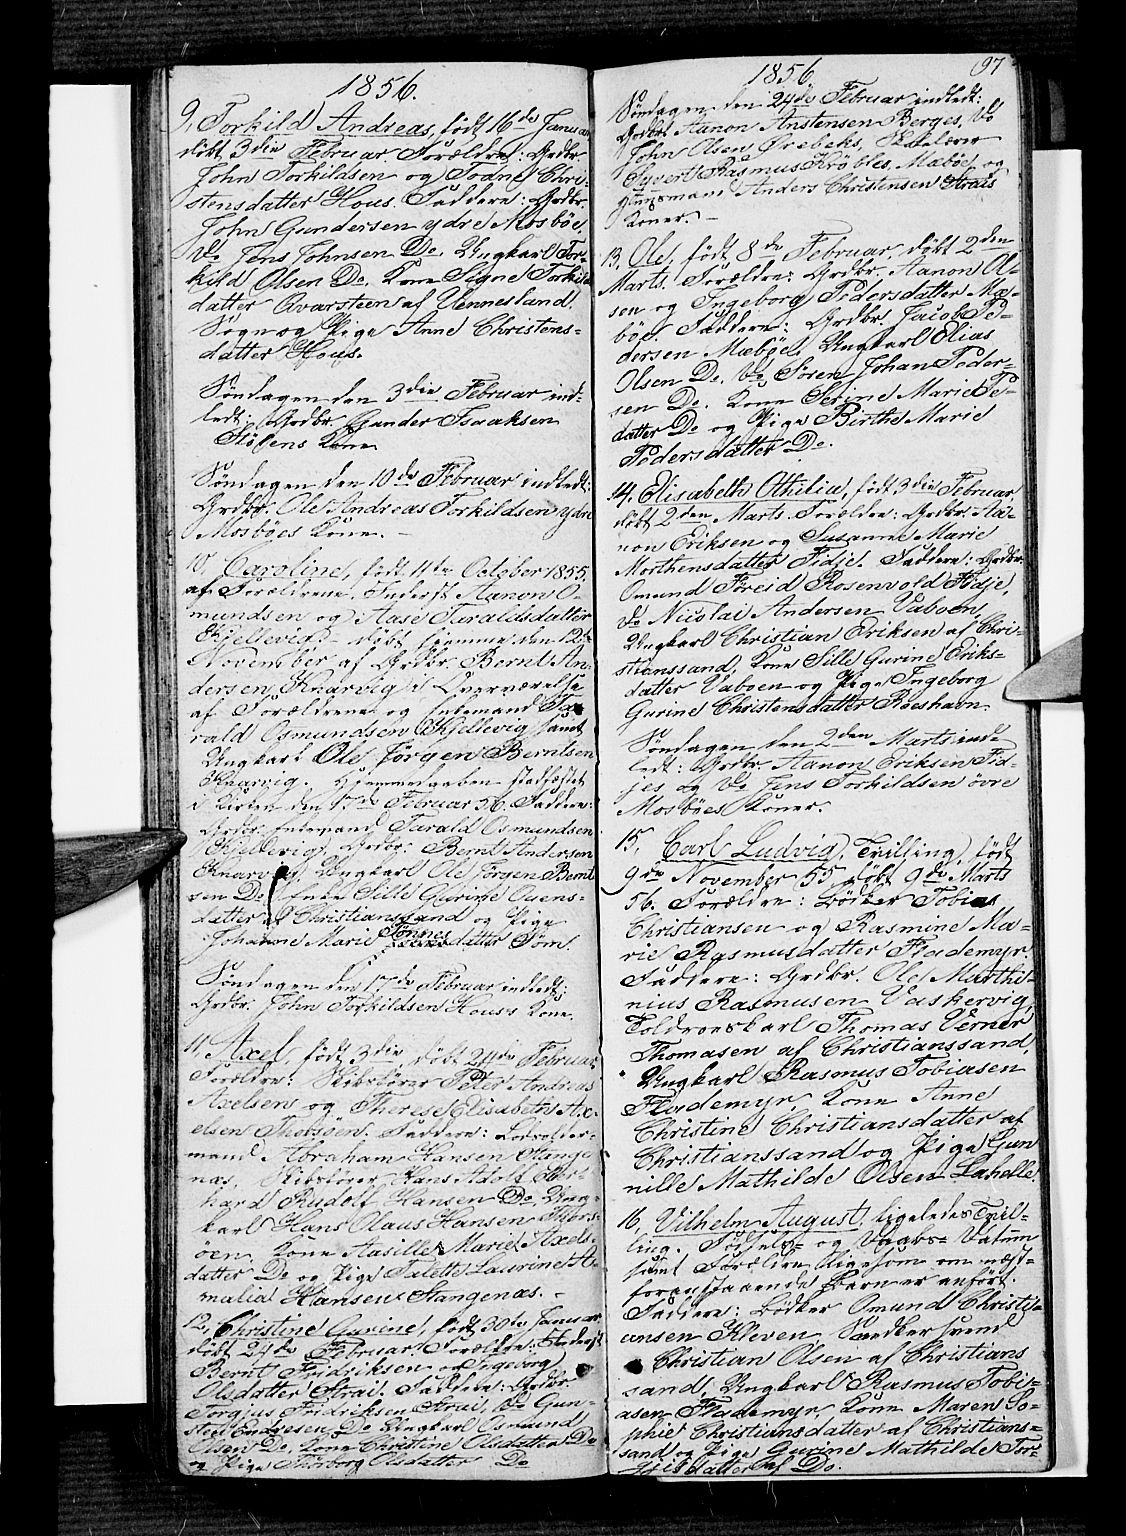 1856.
9, Torkild Andreas, født 16de Januar
døbt 3die Februar Forældre: Grdbr.
John Torkildsen og Todne Chri-
stensdatter Hous. Faddere: Grdbr.
John Gundersen ydre Mosbøe,
Do Jens Johnsen Do. Ungkarl Tor-
kild Olsen Do. Kone Signe Torkils
datter Ovarsteen af Vennesland
Sogn og Pige Anne Christens-
datter Hous.
Søndagen den 3die Februar ind-
ledt: Grdbr. Gunder Isaaksen
Stølens Kone
Søndagen den 10de Februar indledt:
Grdbr. Ole Andreas Torkildsen ydre
Mosbøes Kone. -
10, Caroline, født 11te October 1855.
af Forældrene, Inderst Aanon O-
mundsen og Aase Taraldsdatter
Kjellevig - døbt hjemme den 12te
November af Grdbr. Bernt An-
dersen Knarvig i Overværelse
af Forældrene og Enkemand Ta-
rald Osmundsen Kjellevig samt
Ungkarl Ole Jørgen Berntsen
Knarvig. Hjemmedaaben stadfæstet
i Kirken den 17de Februar 56. Faddere:
Grdbr. Enkemand Tarald Osmundsen
Kjellevig, Grdbr. Bernt Andersen
Knarvig, Ungkarl Ole Jørgen Bernt
sen Do, Enke Sille Gurine Osens-
datter af Christianssand og Pige
Johanne Marie Tønnesdatter Søm.
Søndagen den 17de Februar indledt:
Grdbr. John Torkildsen Hous's Kone.
11, Axel, født 3die, døbt 24de Februar
Forældre: Skibsfører Peter Andreas
Axelsen og Therese Elisabeth Ax-
elsen Thorsøen. Faddere:
mand Abraham Hansen Stange
næs, Skibsfører Hans Adolf Ger-
hard Rudolf Hansen Do, Ung-
karl Hans Olaus Hansen Thors-
øen, Kone Aasille Marie Axels-
datter Do og Pige Talette Laurine A-
malia Hansen Stangenæs. -
12, Christine Gurine, født 30te Januar
døbt 24de Februar Forældre: Inderst
Bernt Fridriksen og Ingeborg
Olsdatter Strai. Faddere: Grdbr.
Torgius Fridriksen Strai, Do Gun-
sten Endresen Do Ungkarl Osmund
Olsen Do, Kone Christine Olsdatter Do
og Pige Thorborg Olsdatter Do
1856. 97
Søndagen den 24de Februar indledt:
Grdbr. Aanon Anstensen Berges, Do
John Olsen Ørebeks, Skolelærer
Syvert Rasmus Krøbles, Mæbøe, og
Huusmand Anders Christensen Strais
Koner. -
13, Ole, født 8de Februar, døbt 2den
Marts. Forældre: Grdbr. Aanon Ol-
sen og Ingeborg Pedersdatter Mæ-
bøe. Faddere: Grdbr. Jacob Pe-
dersen Mæbøe, Ungkarl Elias
Olsen Do. Do Søren Johan Peder-
sen Do. Kone Serine Marie Pe-
datter Do og Pige Birthe Marie
Pedersdatter Do.
14, Elisabeth Othilia, født 3die Februar
døbt 2den Marts. Forældre: Grdbr. Aa-
non Eriksen og Susanne Marie
Morthensdatter Fidje. Faddere: Grdbr.
Omund Føreid Rosenvold Fidje,
Do Nicolai Andersen Vaboen,
Ungkarl Christian Eriksen af Chri-
stianssand, Kone Sille Gurine Eriks-
datter Vaboen og Pige Ingeborg
Gurine Christensdatter Røeshavn.
Søndagen den 2den Marts ind-
ledt: Grdbr. Aanon Eriksen Fid-
jes og Do Jens Torkildsen øvre
Mosbøes Koner.
15, Carl Ludvig, Tvilling, født
9de November 55 døbt 9de Marts
56. Forældre: Bødker Tobias
Christiansen og Rasmine Ma-
rie Rasmusdatter Flademyr.
Faddere: Grdbr. Ole Marthi-
nius Rasmusen Vaskervig,
Toldroerskarl Thomas Verner
Thomasen af Christianssand,
Ungkarl Rasmus Tobiasen
Flademyr, Kone Anne
Christine Christiansdatter af
Christianssand og Pige Gun
nille Mathilde Olsen Lahelle.
16, Vilhelm August, ligeledes Tvil-
ling. Fødsels- og Daabs- Datum
samt Forældre ligesom om næst-
foranstaaende Barn er anført.
Faddere: Bødker Omund Christi-
ansen Kleven, Snedkersvend
Christian Olsen af Christians
sand, Ungkarl Rasmus Tobi-
asen Flademyr, Kone Maren So-
phie Christiansdatter af Christians-
sand og Pige Gurine Mathilde Tor-
kildsdatter af Do.